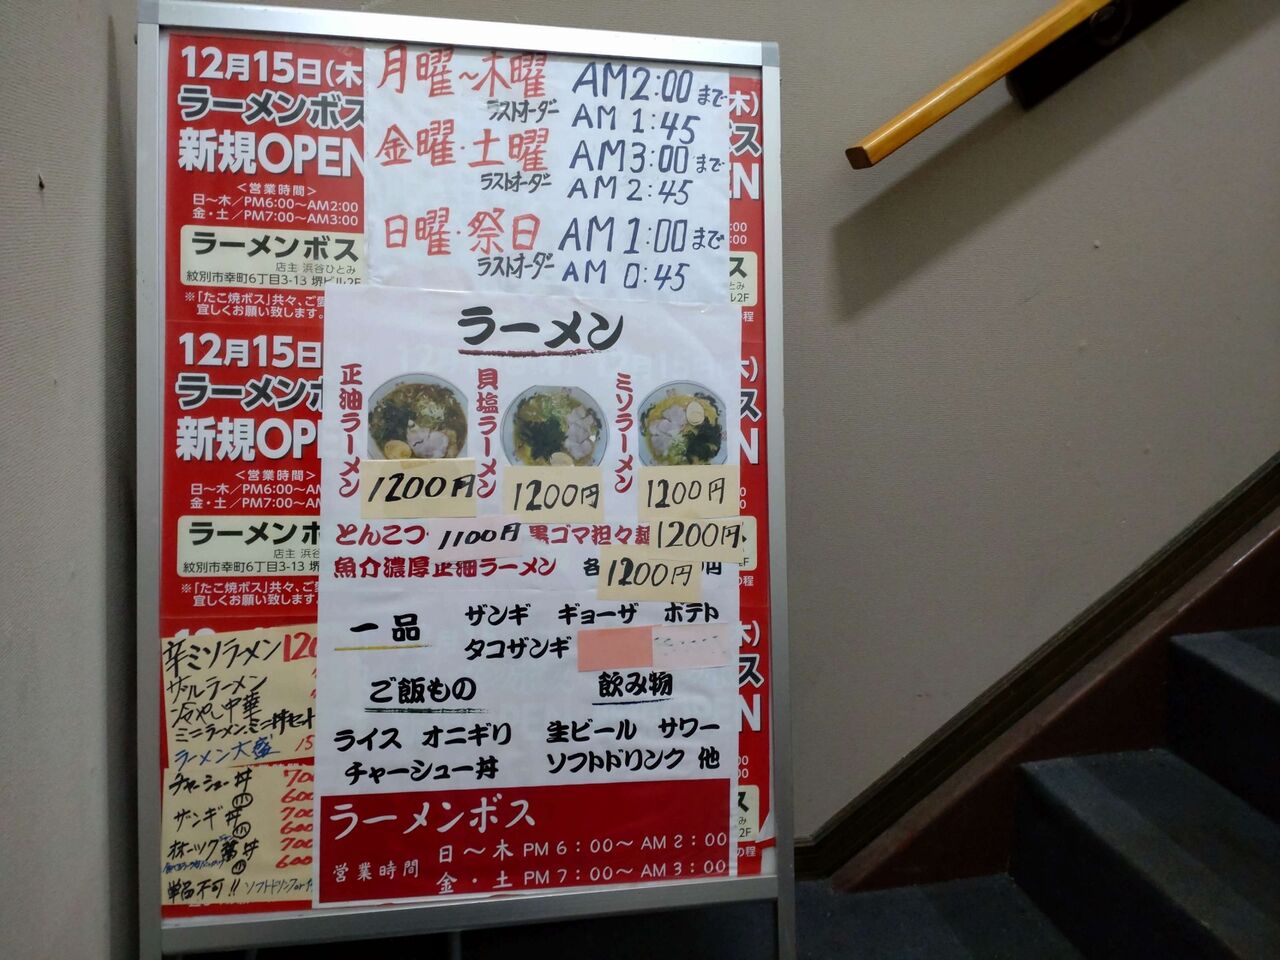 月曜〜木曜 AM2:00まで
ラストオーダー AM 1:45
金曜・土曜 AM3:00まで
ラストオーダー AM 2:45
日曜・祭日 AM 1:00まで
ラストオーダー AM 0:45
12月15日(木
ラーメンボス
新規OPEN
<営業時間>
日〜木/PM6:00〜AM2:00
金・土/PM7:00〜AM3:00
ラーメンボス
店主 浜谷ひとみ
紋別市幸町6丁目3-13 堺ビル2F
※「たこ焼ボス」共々、ご愛
宜しくお願い致します。
12月15日
ラーメン
新規OPE
<営業時間>
日〜木/PM6:00〜AM
金・土/PM7:00〜AM
ラーメンボ
店主 浜谷
紋別市幸町6丁目3-13
※「たこ焼ボス」共々
宜しくお願い致しま
ラーメン
正油ラーメン
1200円
貝塩ラーメン
1200円
ミソラーメン
1200円
とんこつ 1100円 黒ゴマ担々麺 1200円
魚介濃厚正油ラーメン 各 1200円 円
一品 ザンギ ギョーザ ポテト
タコザンギ
ご飯もの
ライス オニギリ
チャーシュー丼
飲み物
生ビール サワー
ソフトドリンク 他
ラーメンボス
営業時間
日〜木 PM6:00〜AM2:00
金・土 PM7:00〜AM3:00
辛ミソラメン 120
ザルラーメン
冷やし中華
ミニラーメンミニ丼セット
ラーメン大盛 15
チャーシュー丼 700
小 600
ザンギ丼 700
小 600
丼 700
小 600
単品不可!! ソフトドリンク